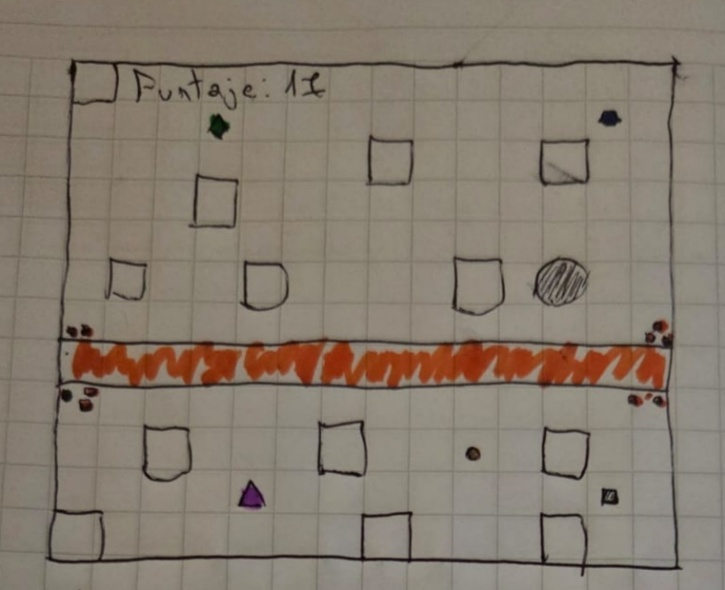 Puntaje: 1I